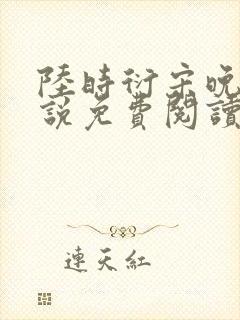 陸時衍宋晚
說免費閱讀
連天紅